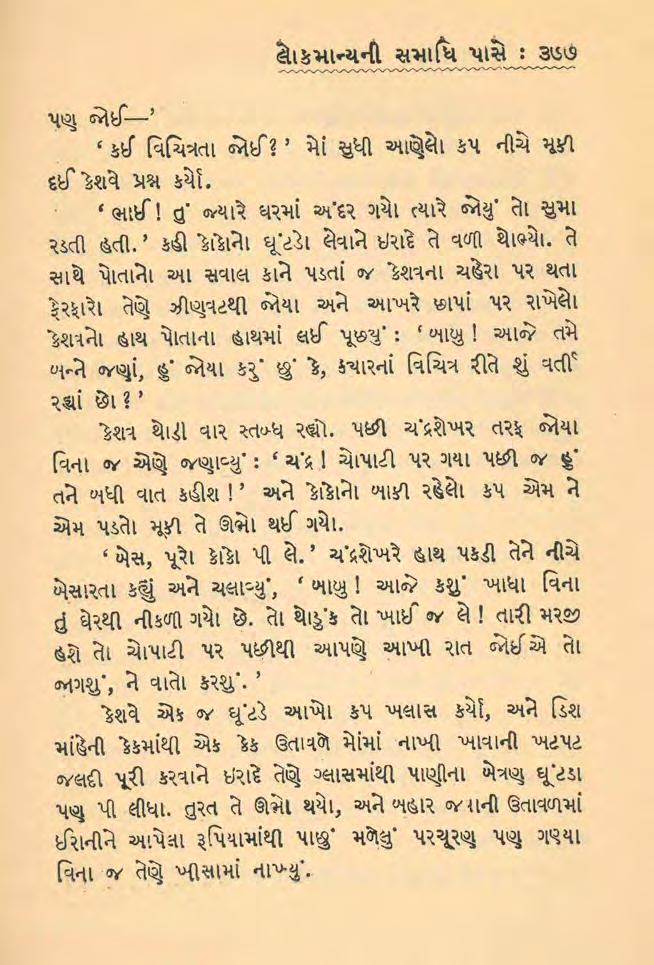 લોકમાન્યની સમાધિ પાસે : ૩૭૭
પણ જોઈ—’
‘ કઈ વિચિત્રતા જોઈ? ’ મેં સુધી આણેલો કપ નીચે મૂકી
દઈ કેશવે પ્રશ્ન કર્યો.
‘ ભાઈ ! તું જ્યારે ઘરમાં અંદર ગયો ત્યારે જોયું તો સુમા
રડતી હતી.’ કહી કોકોનો ઘૂંટડો લેવાને ઇરાદે તે વળી થોભ્યો. તે
સાથે પોતાનો આ સવાલ કાને પડતાં જ કેશવના ચહેરા પર થતા
ફેરફારો તેણે ઝીણવટથી જોયા અને આખરે છાપાં પર રાખેલો
કેશવનો હાથ પોતાના હાથમાં લઈ પૂછ્યું : ‘ બાબુ ! આજે તમે
બન્ને જણાં, હું જોયા કરું છું કે, ક્યારનાં વિચિત્ર રીતે શું વર્તી
રહ્યાં છો ? ’
કેશવ થોડી વાર સ્તબ્ધ રહ્યો. પછી ચંદ્રશેખર તરફ જોયા
વિના જ એણે જણાવ્યું : ‘ ચંદ્ર ! ચોપાટી પર ગયા પછી જ હું
તને બધી વાત કહીશ ! ’ અને કોકોનો બાકી રહેલો કપ એમ ને
એમ પડતો મૂકી તે ઊભો થઈ ગયો.
‘ બેસ, પૂરો કોકો પી લે. ’ ચંદ્રશેખરે હાથ પકડી તેને નીચે
બેસારતા કહ્યું અને ચલાવ્યું, ‘ બાબુ ! આજે કશું ખાધા વિના
તું ઘેરથી નીકળી ગયો છે. તો થોડુંક તો ખાઈ જ લે ! તારી મરજી
હશે તો ચોપાટી પર પછીથી આપણે આખી રાત જોઈએ તો
જાગશું, ને વાતો કરશું. ’
કેશવે એક જ ઘૂંટડે આખો કપ ખલાસ કર્યો, અને ડિશ
માંહેની કેકમાંથી એક કેક ઉતાવળે મોંમાં નાખી ખાવાની ખટપટ
જલદી પૂરી કરવાને ઇરાદે તેણે ગ્લાસમાંથી પાણીના બેત્રણ ઘૂંટડા
પણ પી લીધા. તુરત તે ઊભો થયો, અને બહાર જવાની ઉતાવળમાં
ઈરાનીને આપેલા રૂપિયામાંથી પાછું મળેલું પરચૂરણ પણ ગણ્યા
વિના જ તેણે ખીસામાં નાખ્યું.